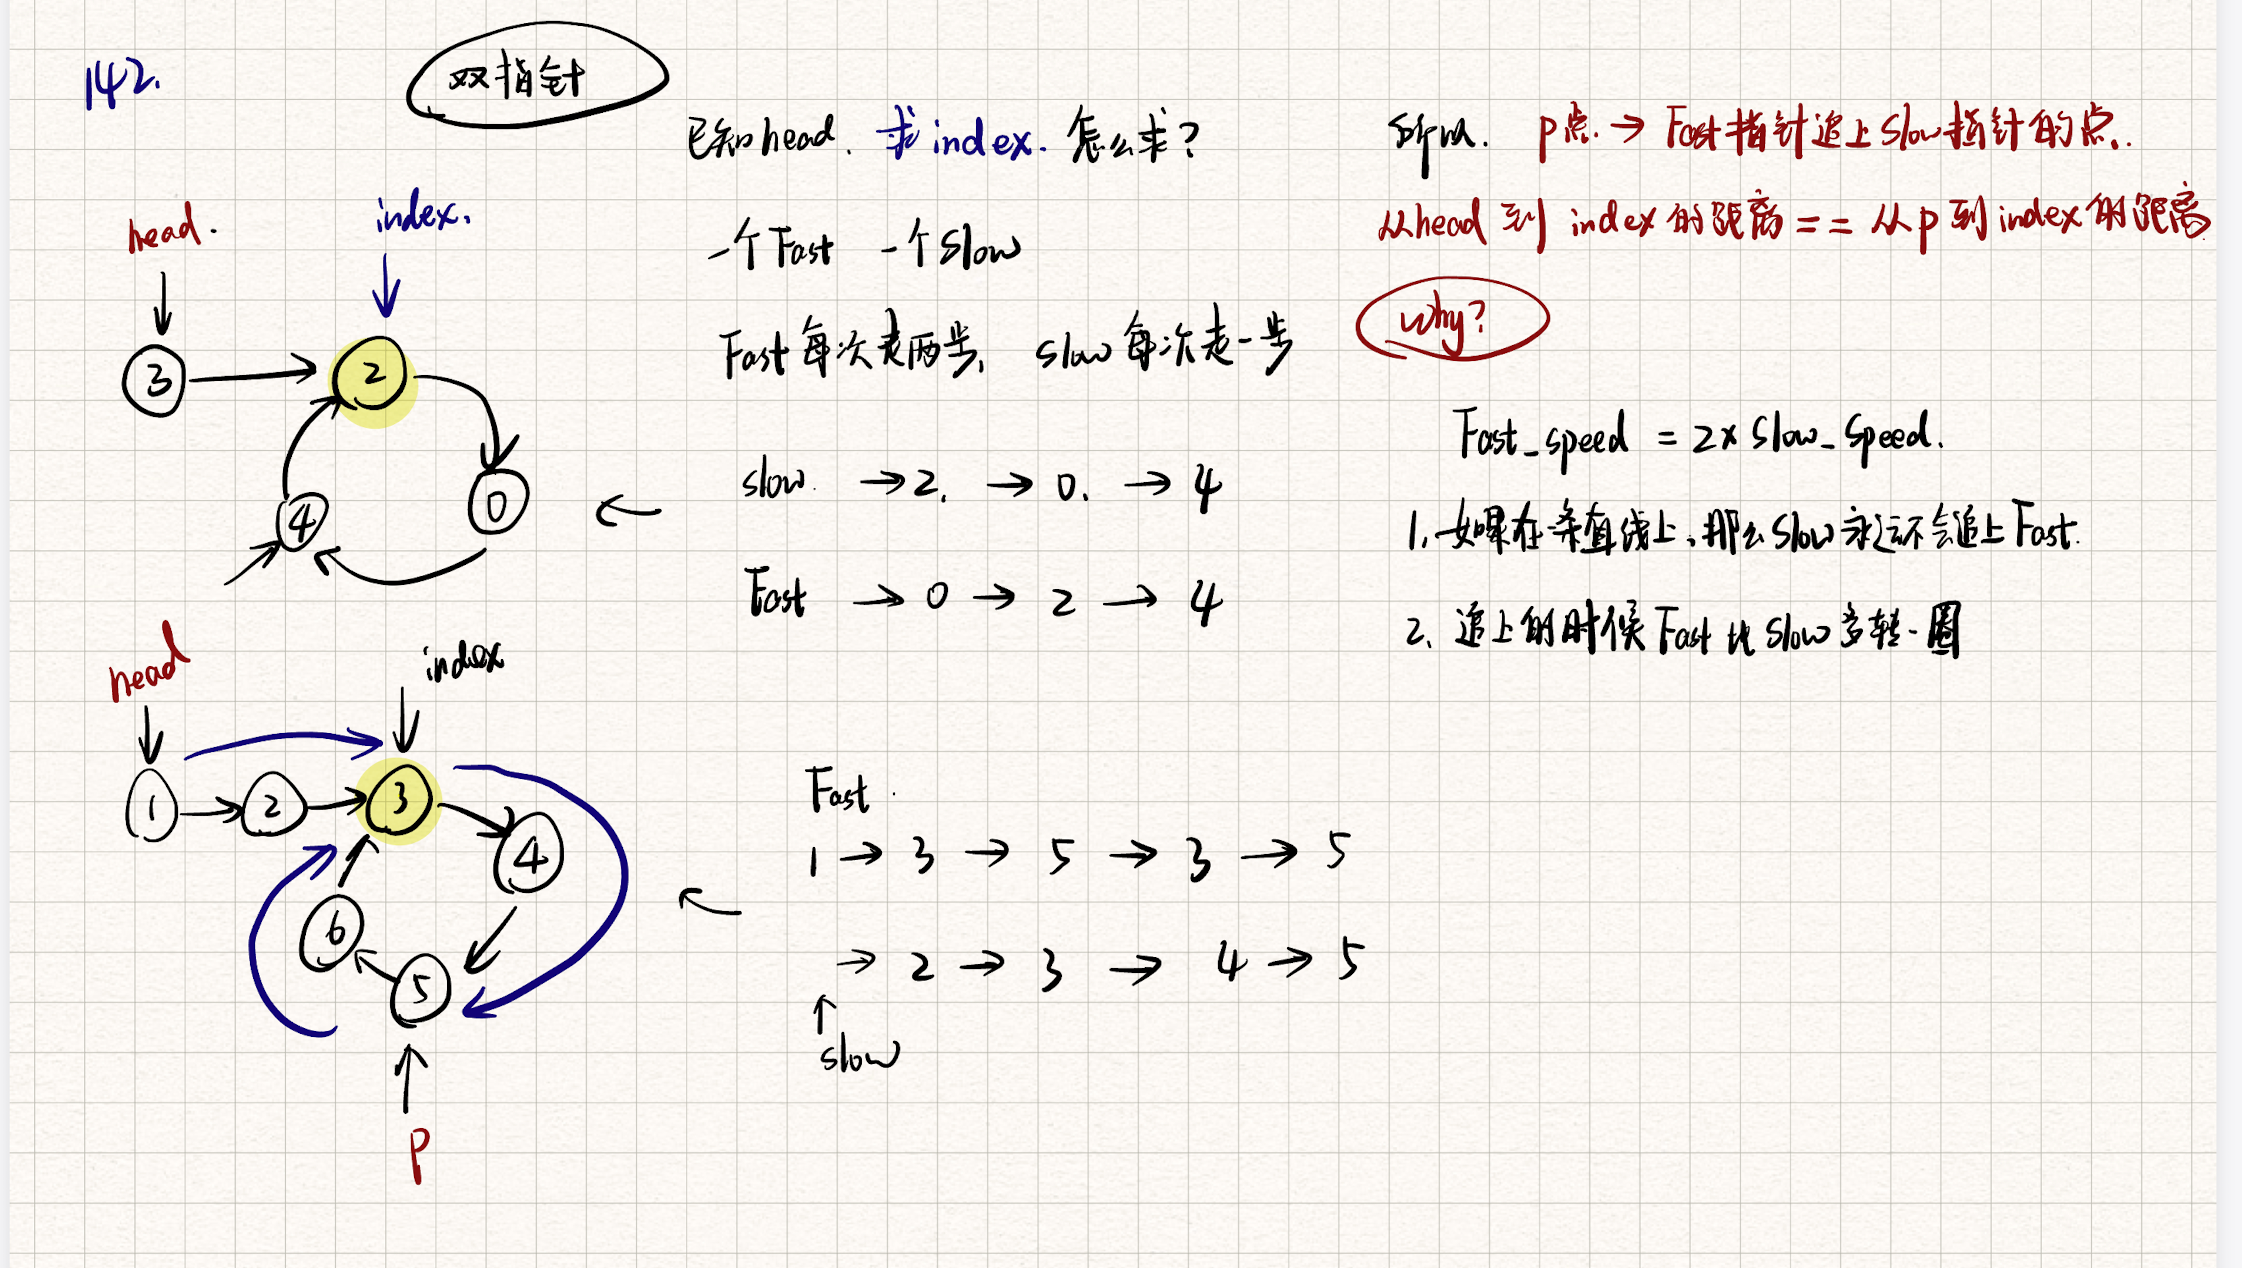 142.
双指针
已知head. 求index. 怎么求?
一个Fast 一个Slow
Fast每次走两步, slow每次走一步
head.
index.
3
2
0
4
slow. →2. →0. →4
Fast →0 →2 →4
head
index
1
2
3
4
5
6
P
Fast.
1→3→5→3→5
→2→3→4→5
slow
所以. P点.→Fast指针追上Slow指针的点.
从head到index的距离==从P到index的距离
why?
Fast_speed = 2×Slow_Speed.
1. 如果在一条直线上,那么Slow永远不会追上Fast.
2. 追上的时候Fast比Slow多转一圈